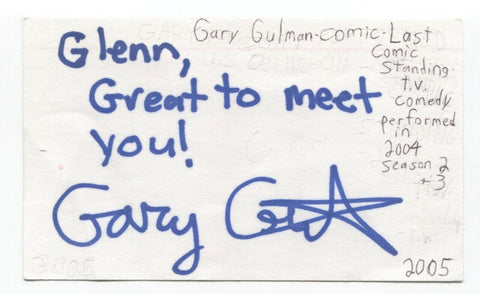 Gary Gulman-comic-Last
Comic
Standing
t.v.
comedy
performed
in
2004
Season 2
+3
Glenn,
Great to meet
you!
Gary
2005